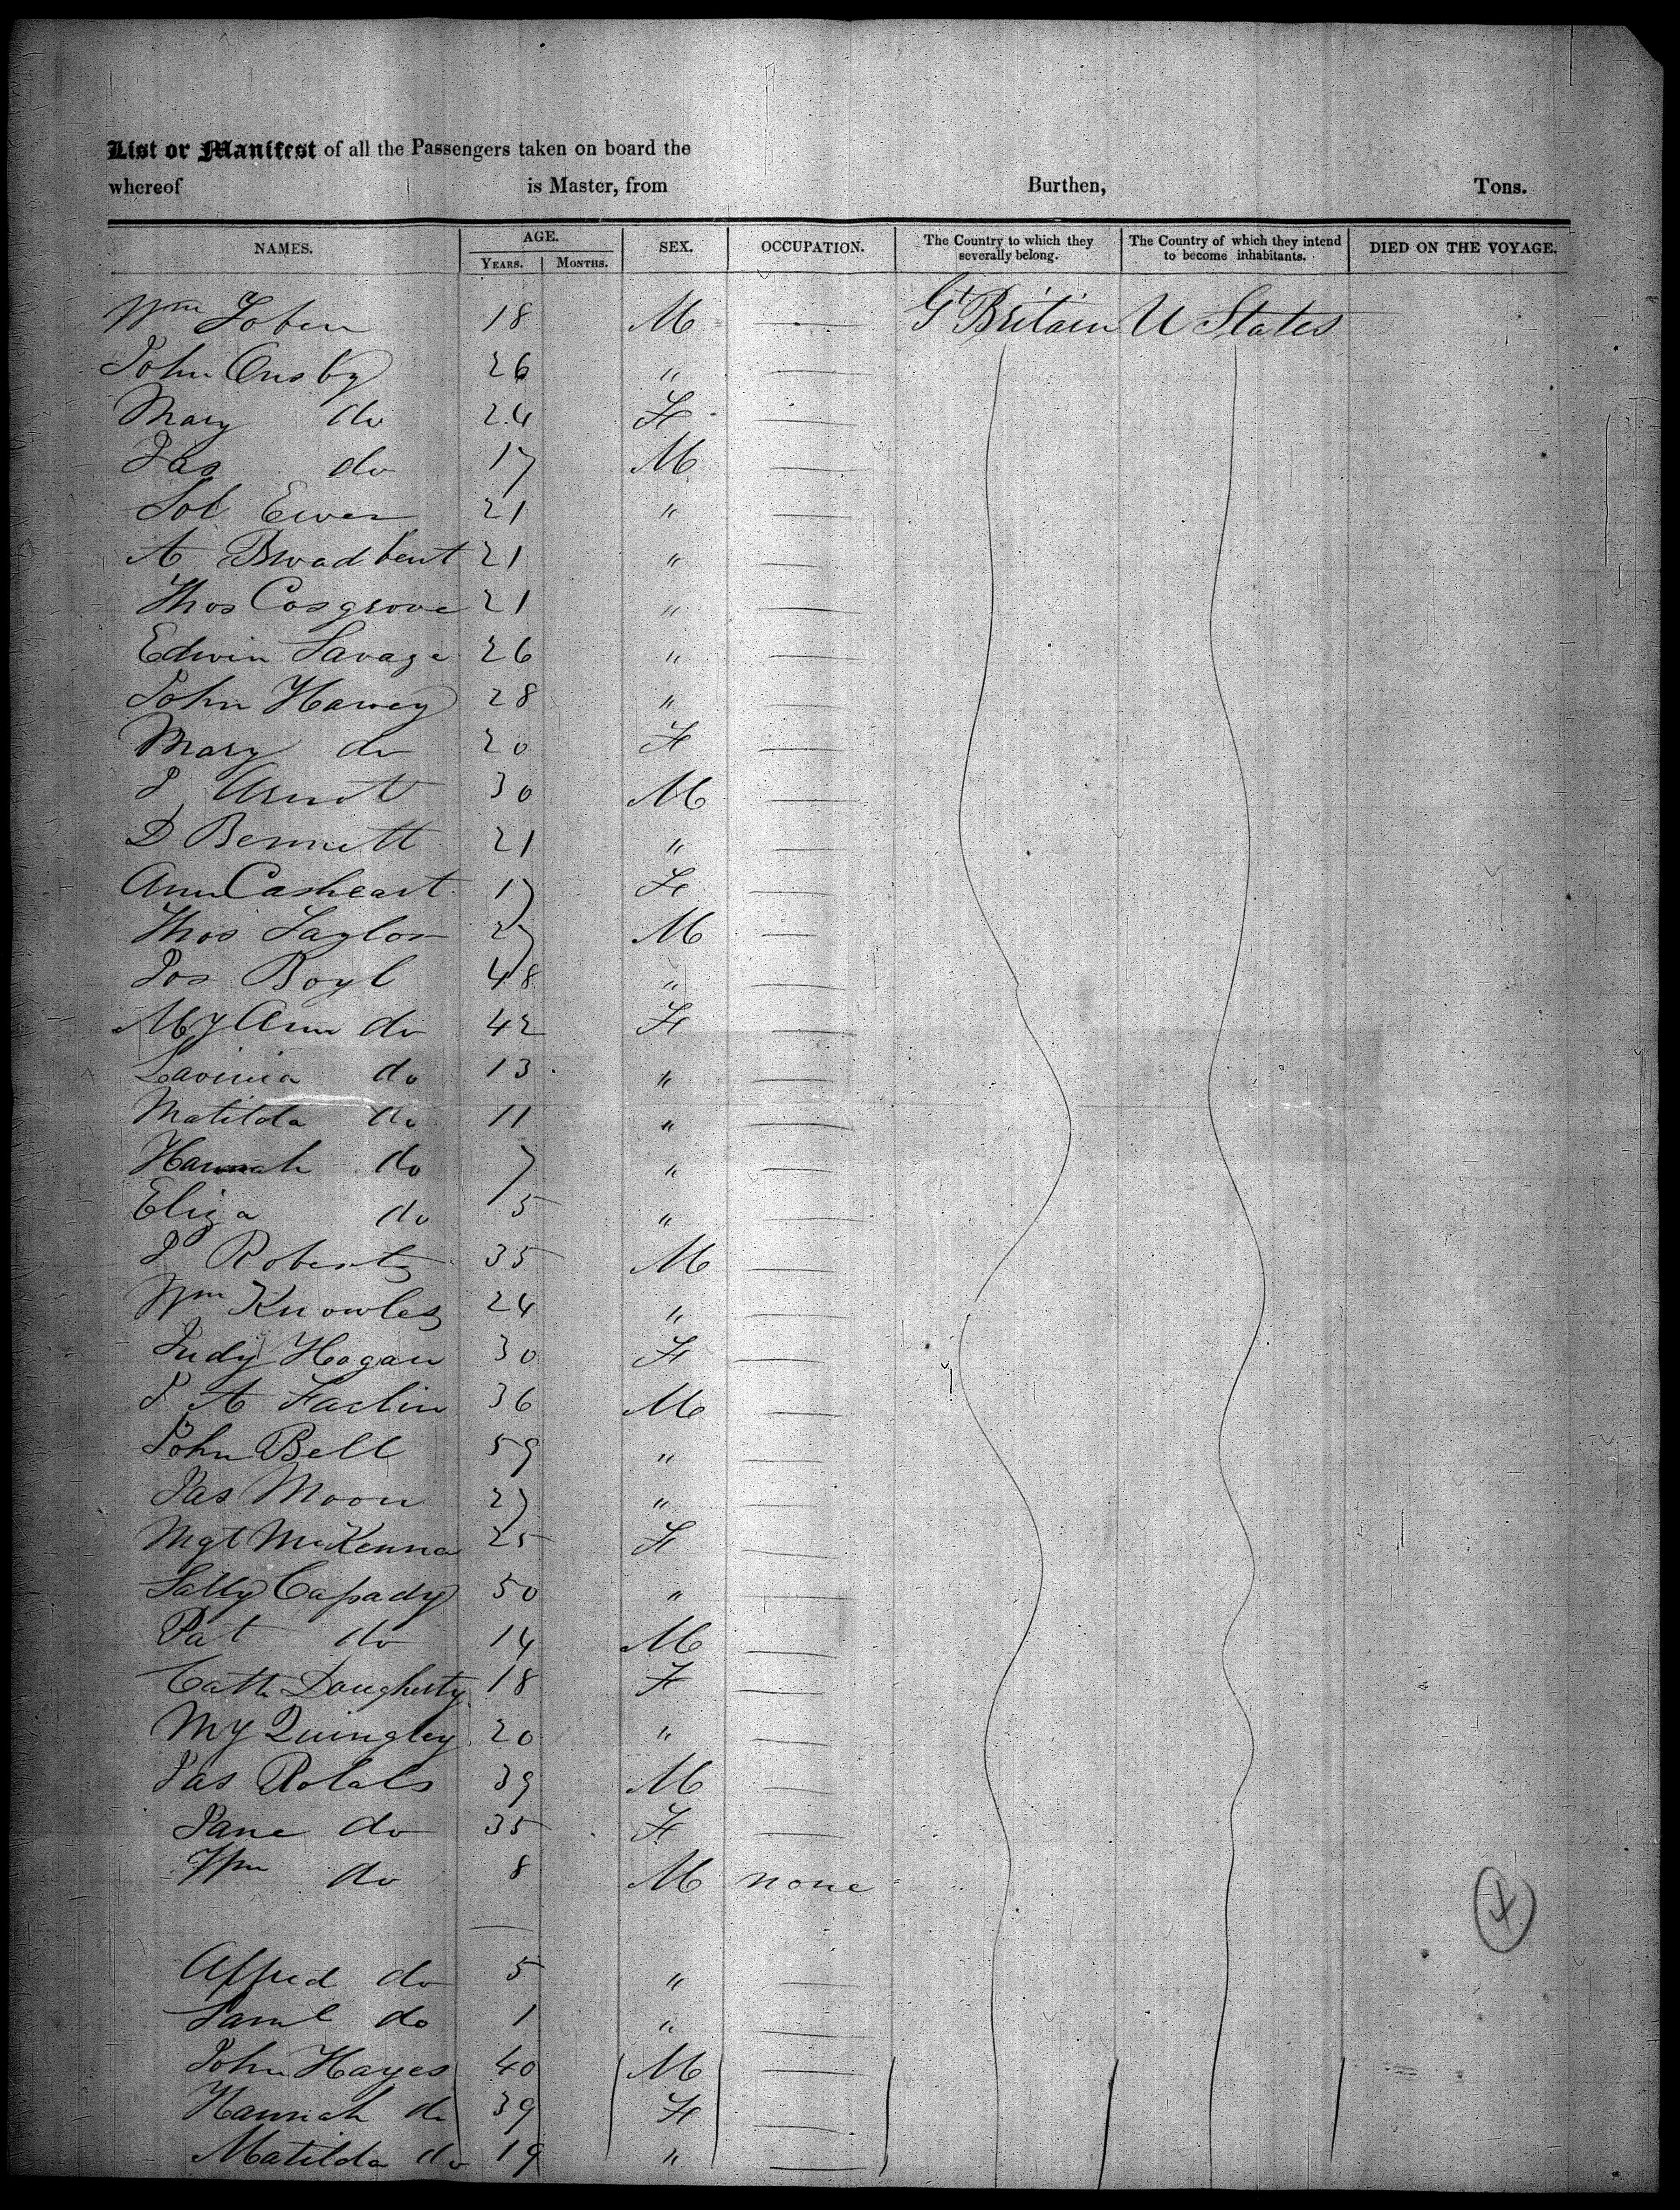 List or Manifest of all the Passengers taken on board the
whereof is Master, from Burthen, Tons.
NAMES. AGE. SEX. OCCUPATION. The Country to which they severally belong. The Country of which they intend to become inhabitants. DIED ON THE VOYAGE.
YEARS. MONTHS.
Wm Tobin 18 M — Gt Britain U States
John Ousby 26 " —
Mary do 24 F —
Jas do 17 M —
Sol Ewen 21 " —
A Broadbent 21 " —
Thos Cosgrove 21 " —
Edwin Savage 26 " —
John Harvey 28 " —
Mary do 20 F —
J Arnot 30 M —
D Bennett 21 " —
Ann Casheart 17 F —
Thos Taylor 27 M —
Jos Boyl 48 " —
My Ann do 42 F —
Lavinia do 13 " —
Matilda do 11 " —
Hannah do 7 " —
Eliza do 5 " —
J Roberts 35 M —
Wm Knowles 24 " —
Judy Hogan 30 F —
J A Faclin 36 M —
John Bell 59 " —
Jas Moon 27 " —
Mgt McKenna 25 F —
Sally Capady 50 " —
Pat do 14 M —
Cath Dougherty 18 F —
My Quingley 20 " —
Jas Rolals 39 M —
Jane do 35 F —
Wm do 8 M none
Alfred do 5 " —
Saml do 1 " —
John Hayes 40 M —
Hannah do 39 F —
Matilda do 19 " —